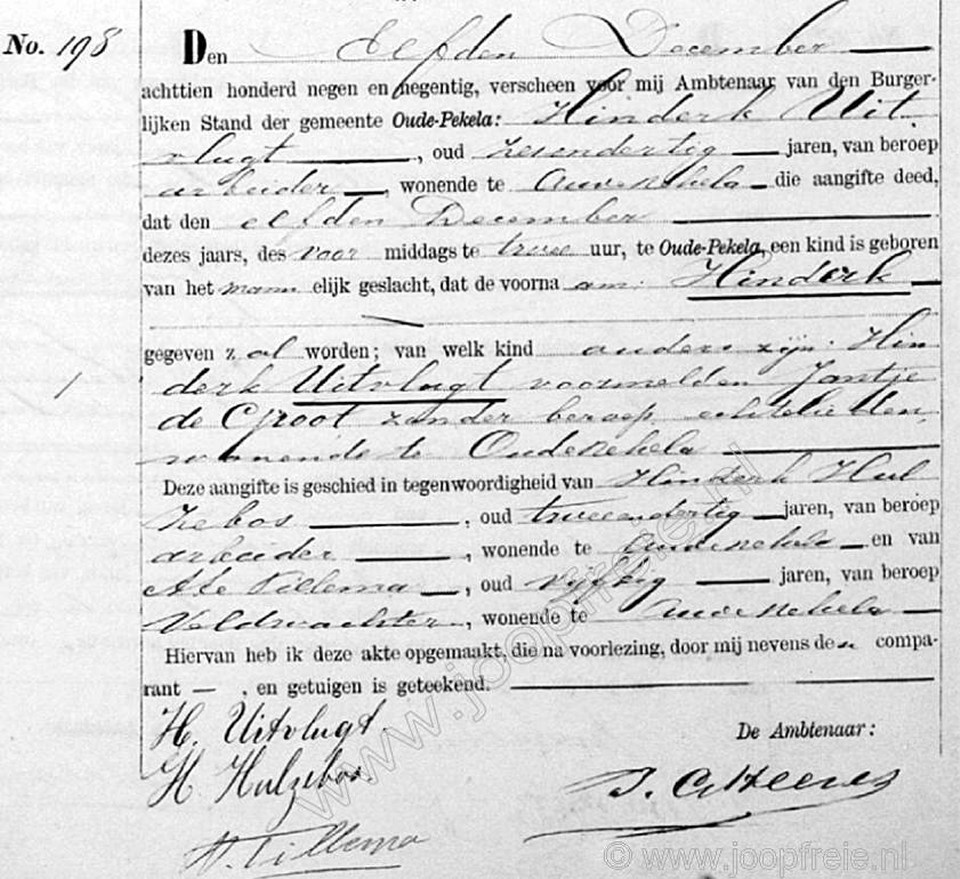 No. 198
Den Elfden December
achttien honderd negen en negentig, verscheen voor mij Ambtenaar van den Burger-
lijken Stand der gemeente Oude-Pekela: Hinderk Uit
vlugt, oud zesendertig jaren, van beroep
arbeider, wonende te Oudepekela die aangifte deed,
dat den elfden December
dezes jaars, des voor middags te twee uur, te Oude-Pekela, een kind is geboren
van het mann elijk geslacht, dat de voorna am: Hinderk
gegeven z al worden; van welk kind ouders zijn: Hin
derk Uitvlugt voormelden Jantje
de Groot zonder beroep, echtelieden,
wonende te Oudepekela
Deze aangifte is geschied in tegenwoordigheid van Hinderk Hul
zebos, oud tweeendertig jaren, van beroep
arbeider, wonende te Oudepekela en van
Tillema, oud vijftig jaren, van beroep
Veldwachter, wonende te Oudepekela
Hiervan heb ik deze akte opgemaakt, die na voorlezing, door mij nevens de n compa-
rant — , en getuigen is geteekend.
H. Uitvlugt
De Ambtenaar:
H. Hulzebos
A. Tillema
www.joopfreie.nl
© www.joopfreie.nl